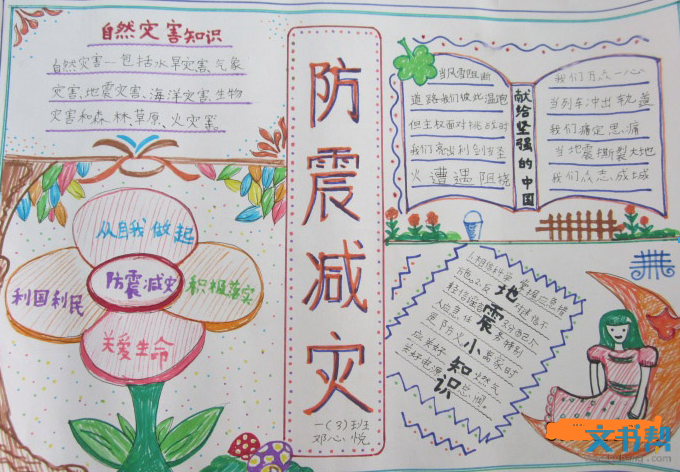 自然灾害知识
自然灾害一包括水旱灾害、气象
灾害、地震灾害、海洋灾害、生物
灾害和森林草原、火灾害。
防震减灾
一(3)班
邓心悦
当风雪阻断
道路我们彼此温抱
但主权面对挑战时
我们亮出利剑当圣
火遭遇阻挠
献给坚强的中国
我们万众一心
当列车冲出轨道
我们痛定思痛
当地震撕裂大地
我们众志成城
从自我做起
防震减灾
利国利民
积极落实
关爱生命
地震小知识
文书帮